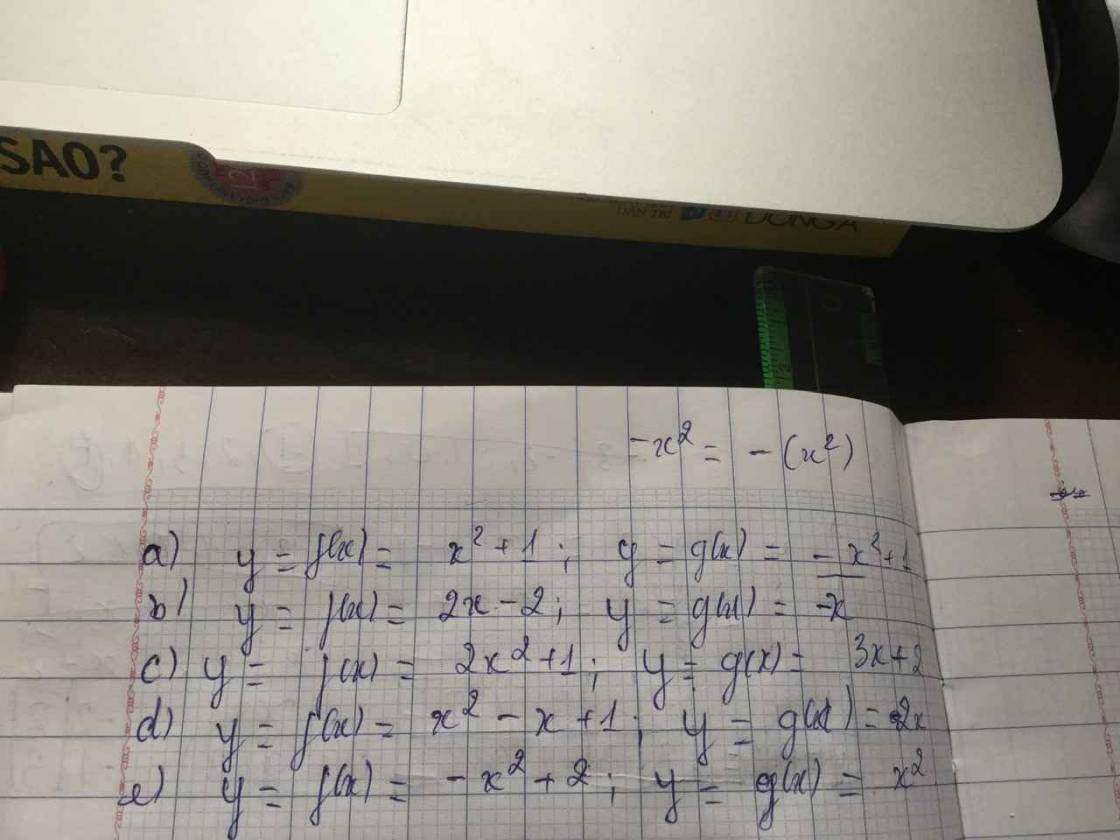 SAO?
12
ĐÔNG A
-x² = -(x²)
a) y = f(x) = x² + 1 ; y = g(x) = -x² + 1
b) y = f(x) = 2x - 2 ; y = g(x) = -x
c) y = f(x) = 2x² + 1 ; y = g(x) = 3x + 2
d) y = f(x) = x² - x + 1 ; y = g(x) = 2x
e) y = f(x) = -x² + 2 ; y = g(x) = x²